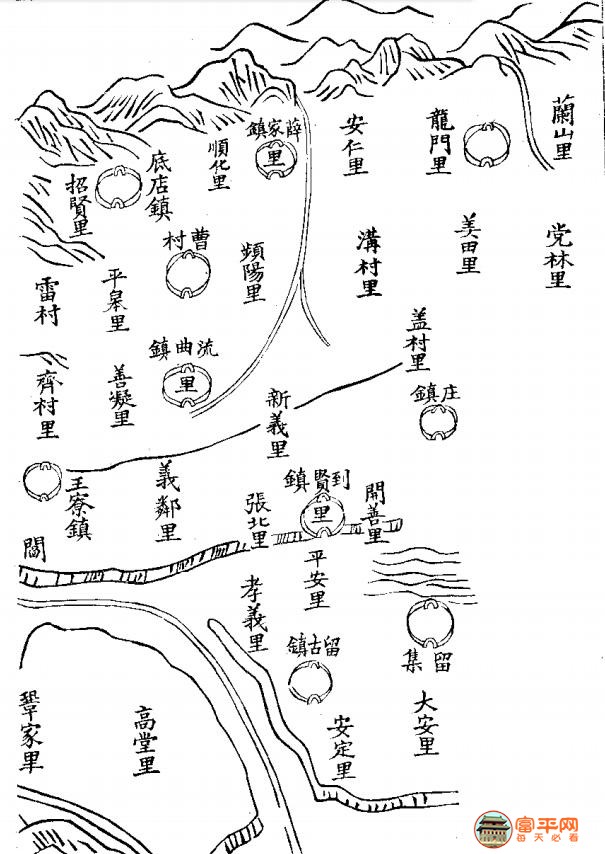 蘭山里
龍門里
安仁里
薛家鎮
里
順化里
底店鎮
招賢里
党林里
美田里
溝村里
頻陽里
曹村
平皋里
雷村
盖村里
庄鎮
流曲鎮
里
善凝里
齊村里
新義里
開善里
到賢鎮
里
張北里
義鄰里
王寮鎮
平安里
孝義里
留集
留古鎮
大安里
安定里
高堂里
鞏家里
富平网
每天必看